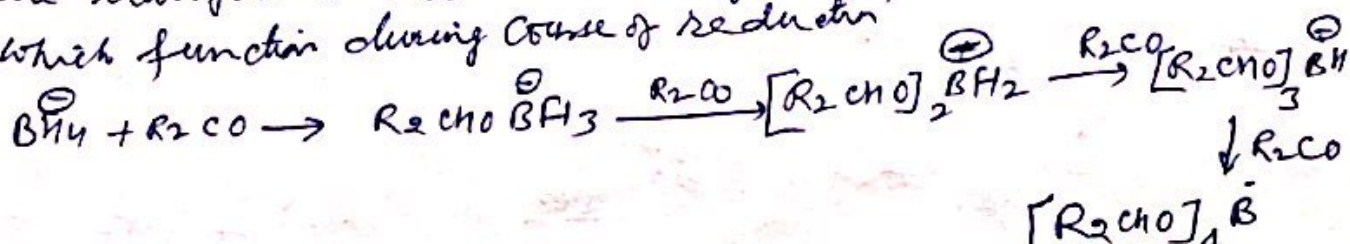 which function during course of reduction
B⊖H4 + R2CO → R2CHO B⊖H3 —R2CO→ [R2CHO]2 B⊖H2 —R2CO→ [R2CHO]3 B⊖H
↓ R2CO
[R2CHO]4 B